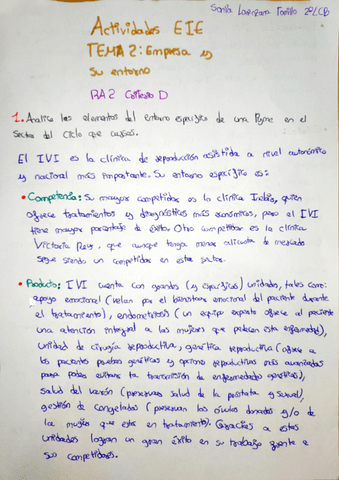 Sonia Lorenzana Portillo 2ºLCB
Actividades EIE
TEMA 2: Empresa y
su entorno
RA2 Criterio D
1. Analice los elementos del entorno específico de una Pyme en el
sector del ciclo que cursas.
El IVI es la clínica de reproducción asistida a nivel autonómico
y nacional más importante. Su entorno específico es:
• Competencia: Su mayor competidor es la clínica, quien
ofrece tratamientos y diagnósticos más económicos, pero el IVI
tiene mayor porcentaje de éxito. Otro competidor es la clínica
Victoria Rey, que aunque tenga menor alícuota de mercado
sigue siendo un competidor en este sector.
• Producto: IVI cuenta con grandes (y específicos) unidades, tales como:
apoyo emocional (velan por el bienestar emocional del paciente durante
el tratamiento), endometriosis (un equipo experto ofrece al paciente
una atención integral a las mujeres que padecen esta enfermedad),
unidad de cirugía reproductiva, genética reproductiva (ofrece a
los pacientes pruebas genéticas y opciones reproductivas más avanzadas
para poder evitar la transmisión de enfermedades genéticas),
salud del varón (preservar salud de la próstata y sexual),
gestión de congelados (preservan los óvulos donados y/o de
la mujer que está en tratamiento). Gracias a estas
unidades logran un gran éxito en su trabajo frente a
sus competidores.